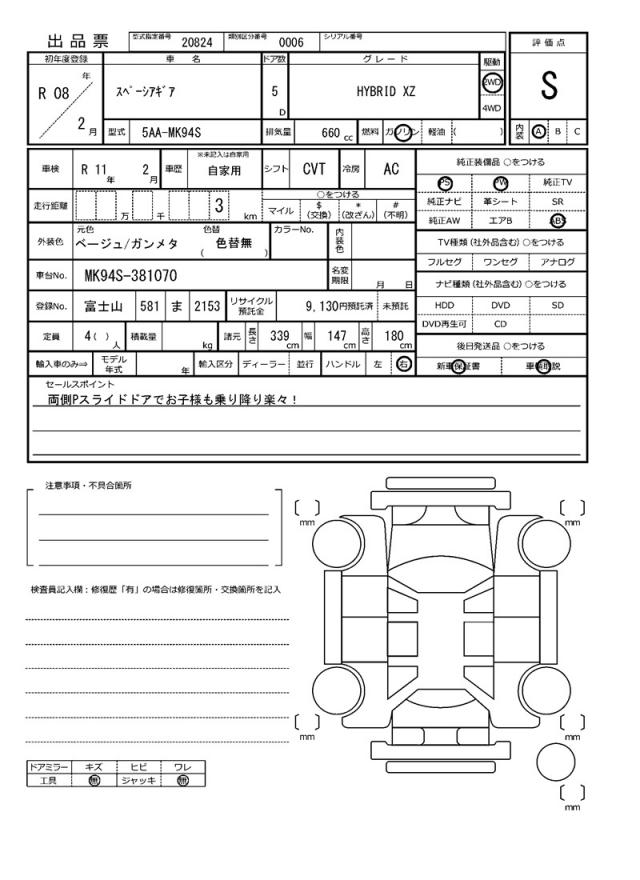 出品票 型式指定番号 20824 類別区分番号 0006 シリアル番号
評価点
初年度登録 車名 ドア数 グレード 駆動
R 08 年 2 月 スペーシアギア 5 D HYBRID XZ 2WD 4WD S
型式 5AA-MK94S 排気量 660 cc 燃料 ガソリン 軽油 ( ) 内装 A B C
車検 R 11 年 2 月 車歴 ※未記入は自家用 自家用 シフト CVT 冷房 AC 純正装備品 ○をつける
PS PW 純正TV
走行距離 万 千 3 km ○をつける 純正ナビ 革シート SR
マイル $(交換) *(改ざん) #(不明) 純正AW エアB ABS
外装色 元色 ベージュ/ガンメタ 色替 ( 色替無 ) カラーNo. 内装色 TV種類 (社外品含む) ○をつける
フルセグ ワンセグ アナログ
車台No. MK94S-381070 名変期限 月 日 ナビ種類 (社外品含む) ○をつける
登録No. 富士山 581 ま 2153 リサイクル預託金 9,130円預託済 未預託 HDD DVD SD
DVD再生可 CD
定員 4( ) 人 積載量 kg 諸元 長さ 339 cm 幅 147 cm 高さ 180 cm 後日発送品 ○をつける
輸入車のみ⇒ モデル年式 年 輸入区分 ディーラー 並行 ハンドル 左 右 新車保証書 車輌取説
セールスポイント
両側Pスライドドアでお子様も乗り降り楽々！
注意事項・不具合箇所
mm mm
検査員記入欄：修復歴「有」の場合は修復箇所・交換箇所を記入
mm mm
ドアミラー キズ ヒビ ワレ
工具 無 ジャッキ 無
mm